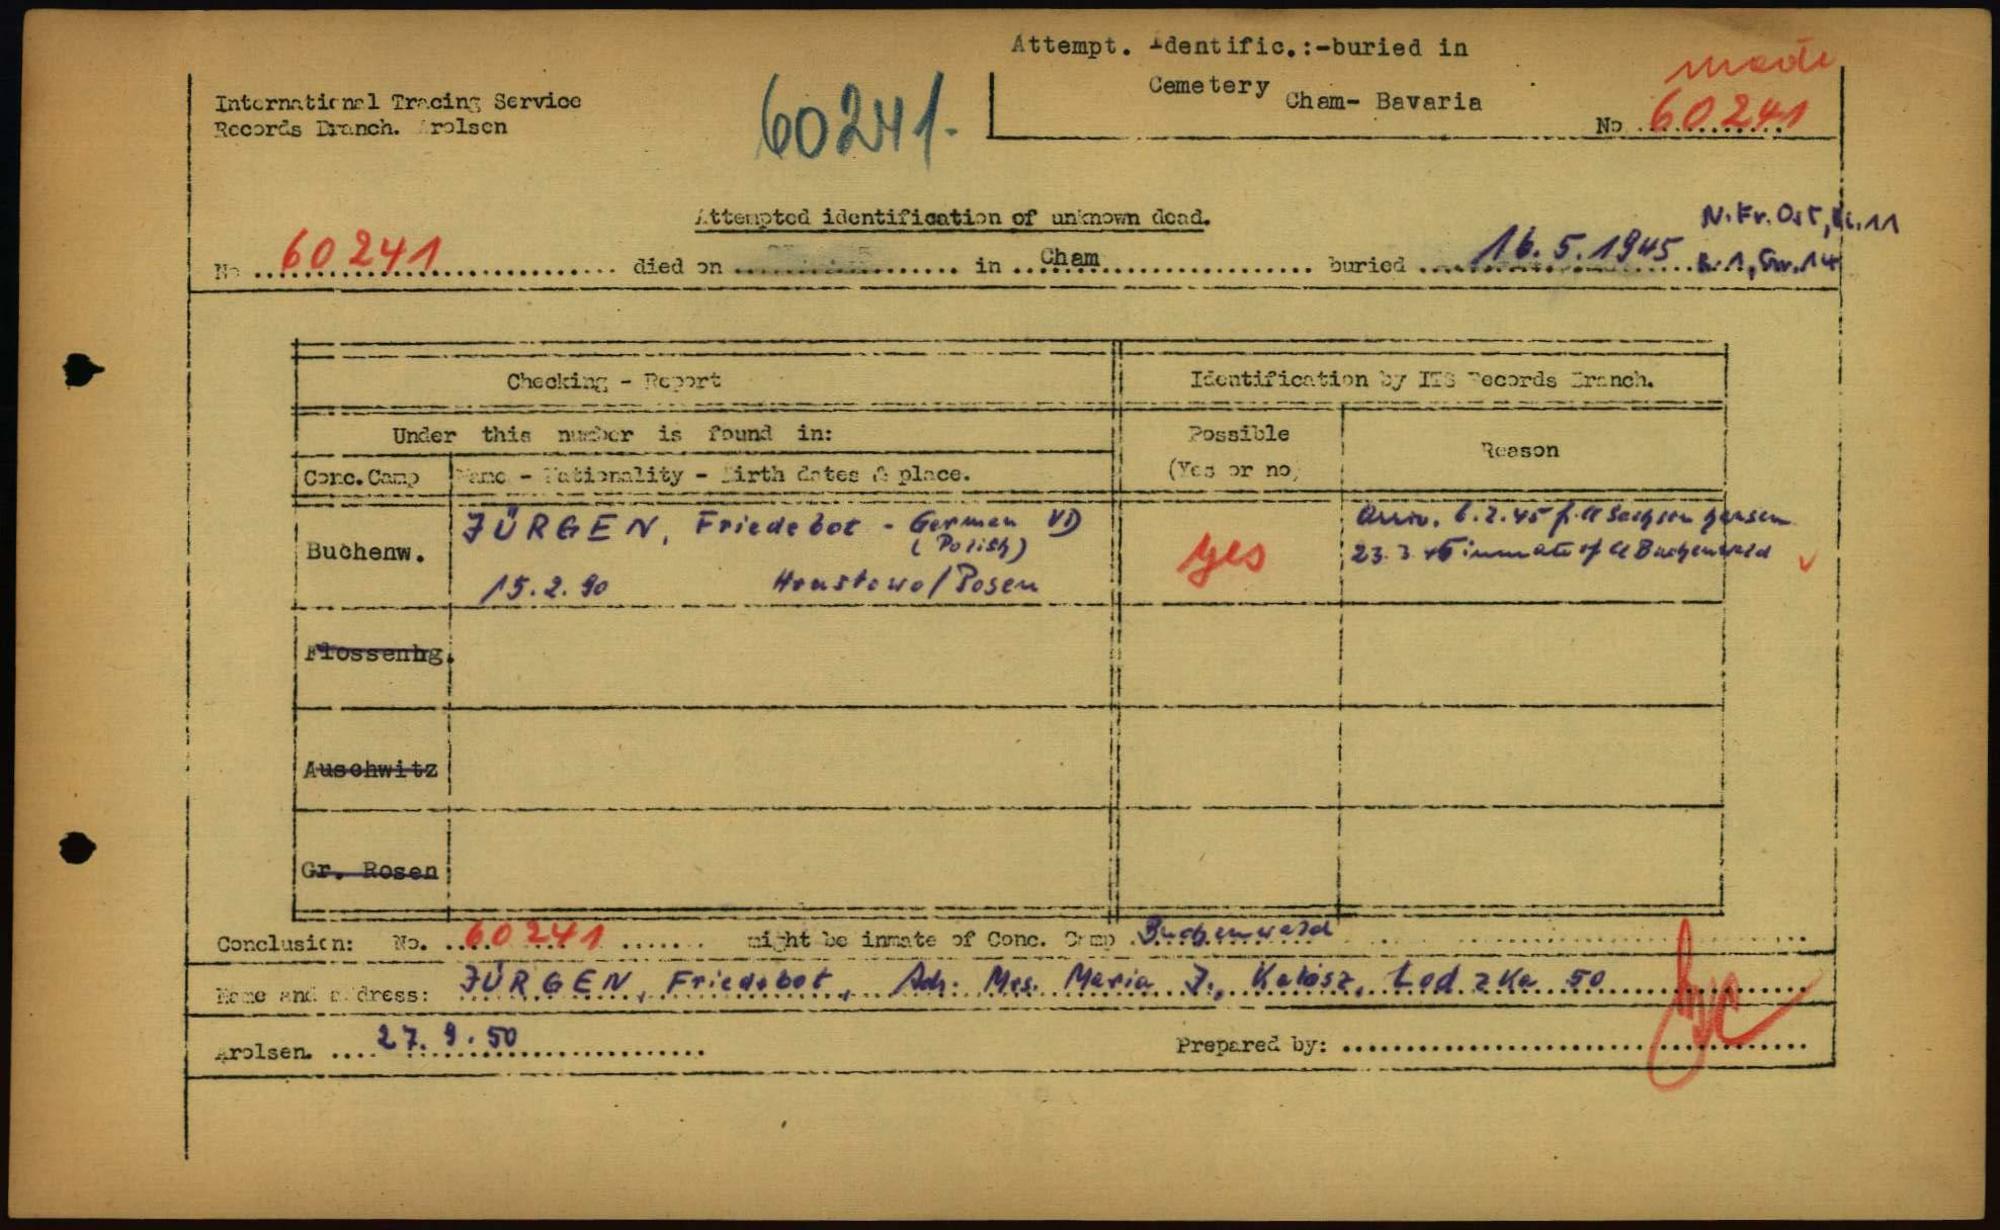 Attempt. Identific.:-buried in
Cemetery Cham- Bavaria
made
No 60241
International Tracing Service
Records Branch. Arolsen
60241.
Attempted identification of unknown dead.
N.Fr. Ost,
No 60241 died on in Cham buried 16.5.1945
Checking - Report
Identification by ITS Records Branch.
Under this number is found in:
Possible
(Yes or no)
Reason
Conc.Camp
Name - Nationality - Birth dates & place.
Buchenw.
JÜRGEN, Friedebot - German
(Polish)
15.2.90 /Posen
yes
Arriv. 6.2.45
23.3.45 inmate of Buchenwald
Flossenbg.
Auschwitz
Gr. Rosen
Conclusion: No. 60241 might be inmate of Conc. Camp Buchenwald
Name and address: JÜRGEN, Friedebot, Adr. Mrs. Maria J., Kalisz, Lodzka 50
Arolsen. 27.9.50
Prepared by: